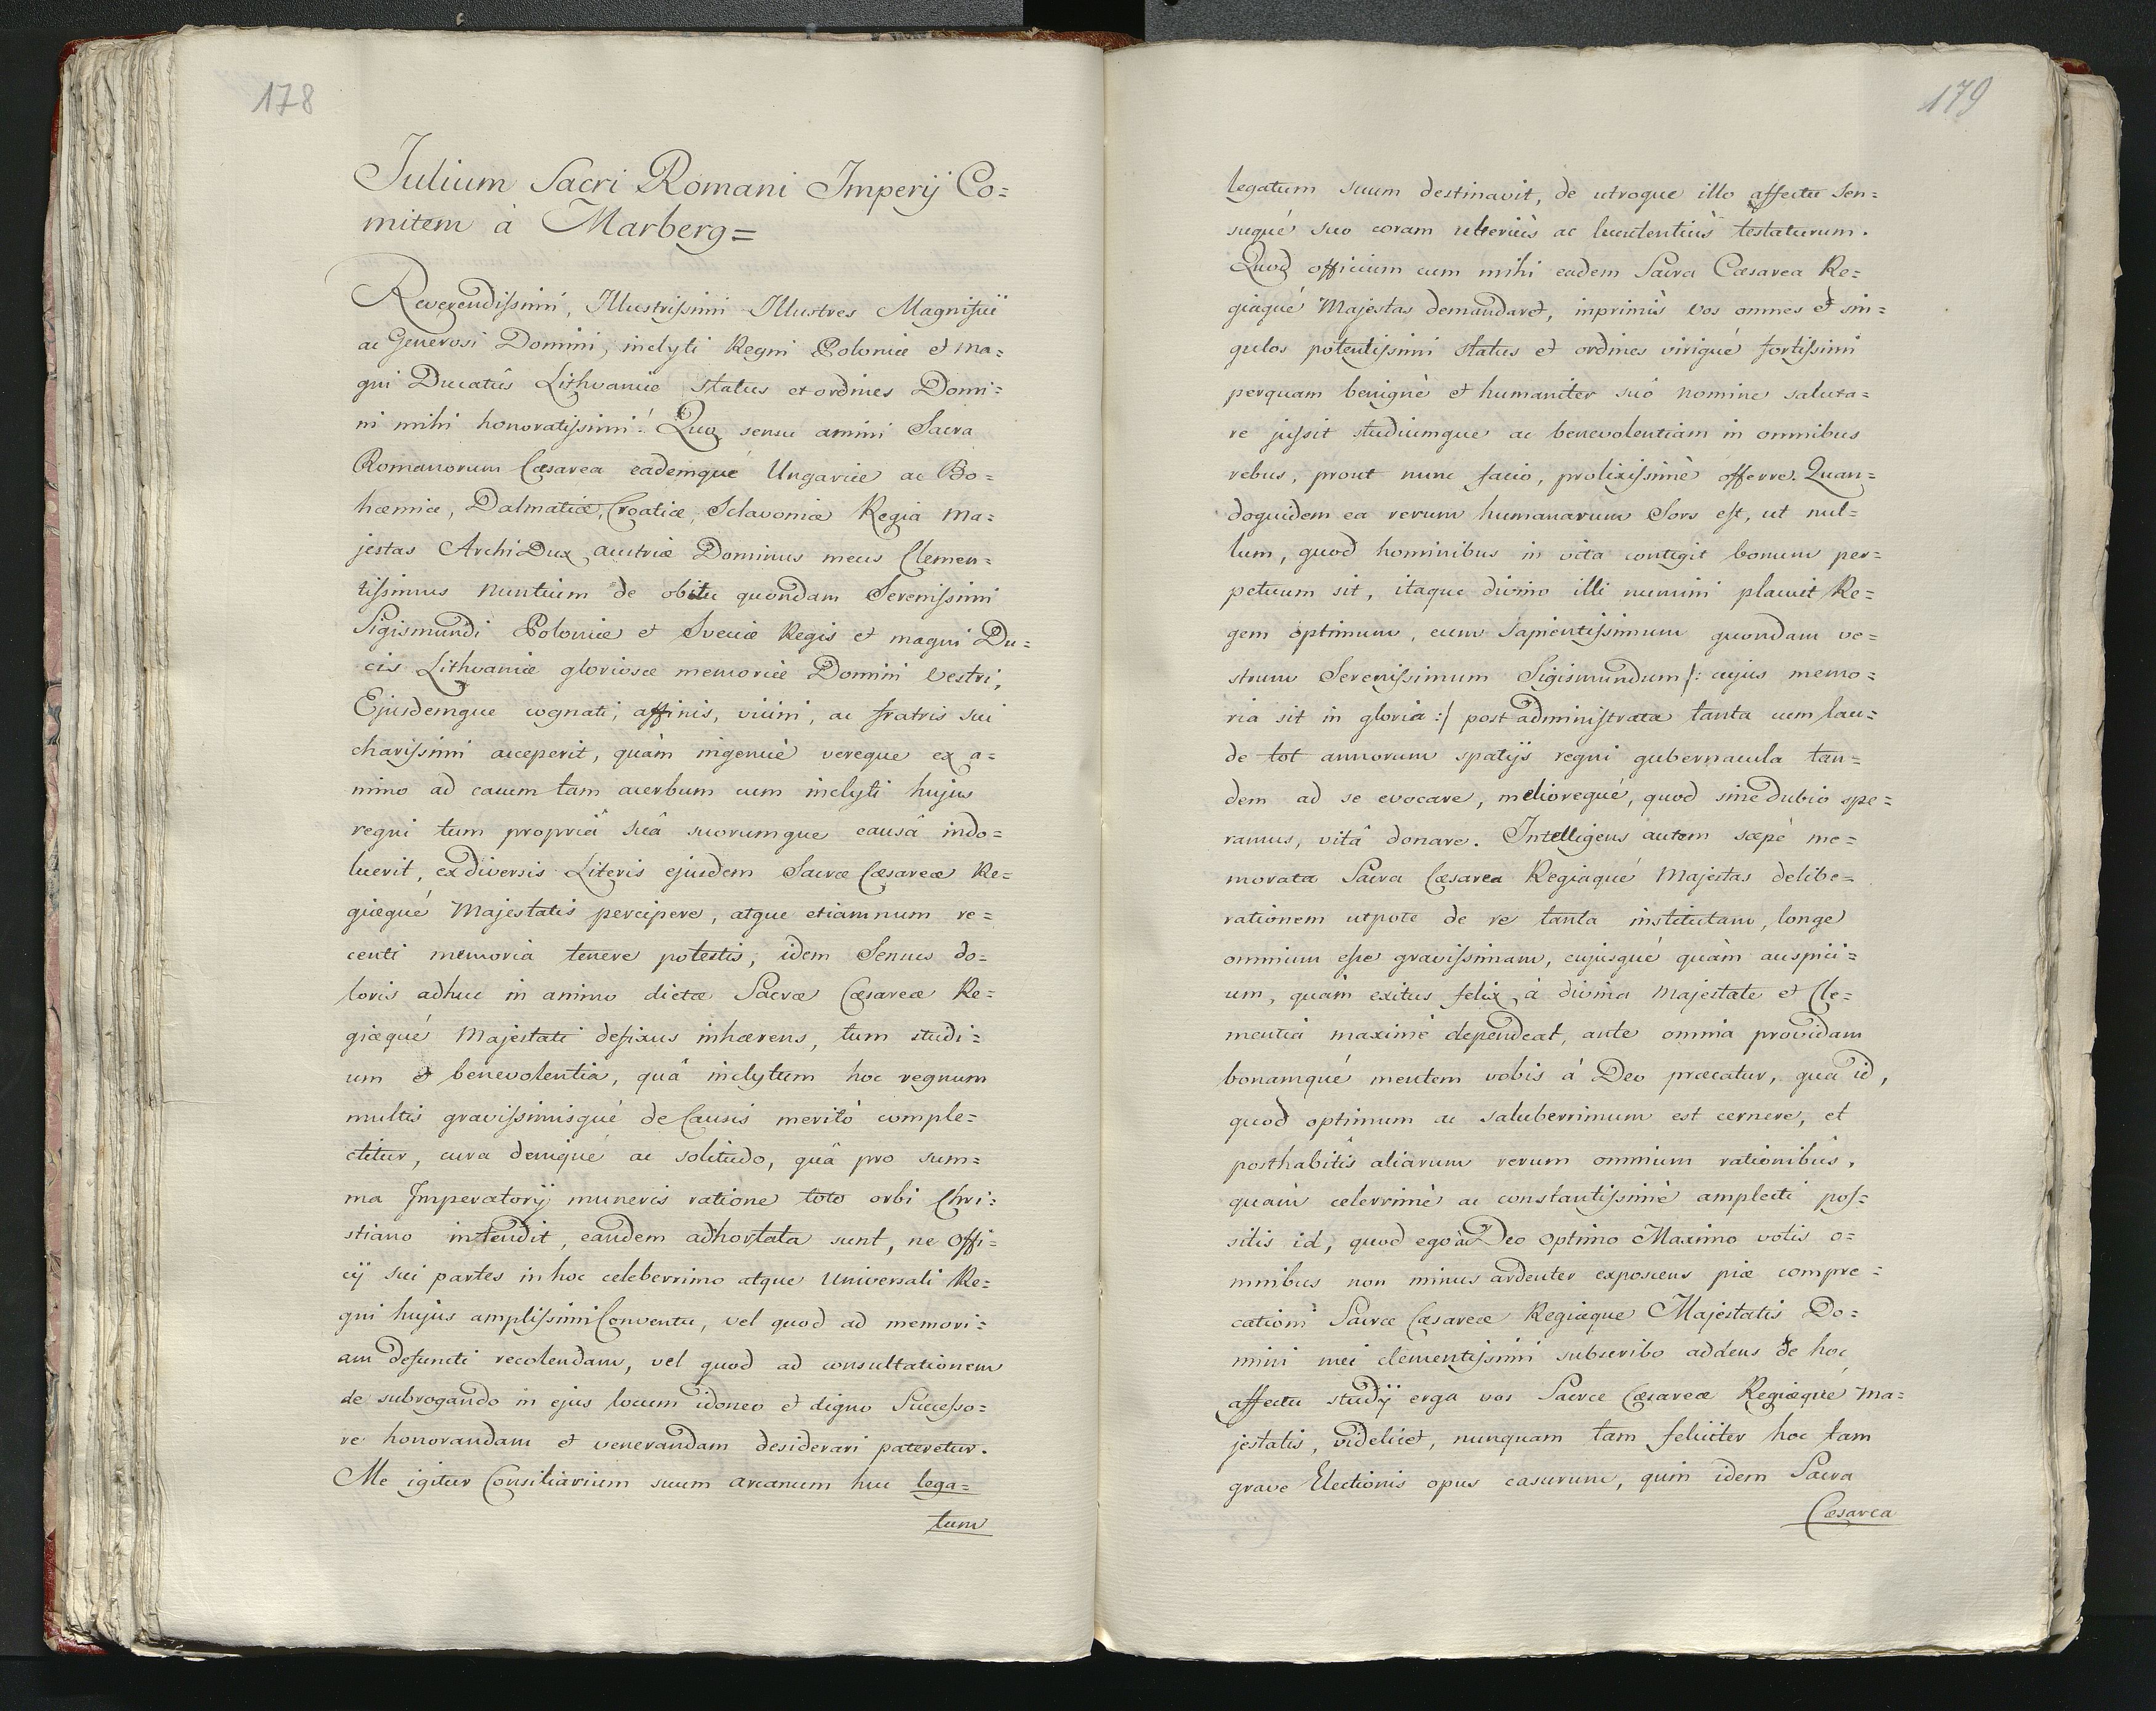 178
Julium Sacri Romani Imperij Co=
mitem à Marberg=
Reverendissimi, Illustrissimi Illustres Magnifici
ac Generosi Domini, inclyti Regni Poloniæ et ma=
gni Ducatûs Lithvaniæ status et ordines Domi=
ni mihi honoratissimi! Quo sensu amini Sacra
Romanorum Cæsarea eademqué Ungariæ ac Bo=
hœmiæ, Dalmatiæ, Croatiæ, Sclavoniæ Regia Ma=
jestas ArchiDux austriæ Dominus meus Clemen=
tissimus nuntium de obitu quondam Serenissimi
Sigismundi Poloniæ et Sveciæ Regis et magni Du=
cis Lithvaniæ gloriosæ memoriæ Domini Vestri,
Ejusdemque cognati, affinis, vicini, ac fratris sui
charissimi acceperit, quàm ingenuè vereque ex a=
nimo ad casum tam acerbum cum inclyti hujus
regni tum propriâ suâ suorumque causâ indo=
luerit, ex diversis Literis ejusdem Sacræ Cæsareæ Re=
giæqué Majestatis percipere, atque etiamnum re=
centi memoria tenere potestis, idem Sensus do=
loris adhuc in animo dictæ Sacræ Cæsareæ Re=
giæqué Majestati defixus inhærens, tum studi=
um & benevolentia, quâ inclytum hoc regnum
multis gravissimisqué de Causis meritò comple=
ctitur, cura deniqué ac solitudo, quâ pro sum=
ma Imperatorij muneris ratione toto orbi Chri=
stiano intendit, eandem adhortata sunt, ne offi=
cij sui partes in hoc celeberrimo atque Universali Re=
gni hujus amplissimi Conventu, vel quod ad memori=
am defuncti recolendam, vel quod ad consultationem
de subrogando in ejus locum idoneo et digno Successo=
re honorandam et venerandam desiderari pateretur.
Me igitur Consiliarium suum arcanum huc lega=
tum
179
legatum suum destinavit, de utroque illo affectu sen=
suqué suo coram uberiùs ac luculentiùs testaturum.
Quod officium cum mihi eadem Sacra Cæsarea Re=
giaqué Majestas demandaret, inprimis vos omnes et sin=
gulos potentissimi status et ordines viriqué fortissimi
perquam benignè et humaniter suo nomine saluta=
re jussit studiumque ac benevolentiam in omnibus
rebus, prout nunc facio, prolixissimè offerre. Quan=
doquidem ea rerum humanarum Sors est, ut nul=
lum, quod hominibus in vita contigit bonum per=
petuum sit, itaque divino illi numini placuit Re=
gem optimum, eum Sapientissimum quondam ve=
strum Serenissimum Sigismundum /: cujus memo=
ria sit in gloria :/ post administrata tanta cum lau=
de tot annorum spatijs regni gubernacula tan=
dem ad se evocare, meliorequé, quod sine dubio spe=
ramus, vitâ donare. Intelligens autem sæpè me=
morata Sacra Cæsarea Regiaqué Majestas delibe=
rationem utpote de re tanta institutam, longe
omnium esse gravissimam, cujusqué quàm auspici=
um, quàm exitus felix à divina Majestate et Cle=
mentia maximè dependeat, ante omnia providam
bonamqué mentem vobis à Deo præcatur, qua id,
quod optimum ac saluberrimum est cernere, et
posthabitis aliarum rerum omnium rationibus,
quàm celerrimè ac constantissimè amplecti pos=
sitis id, quod ego à Deo Optimo Maximo votis o=
mnibus non minus ardenter exposcens piæ compre=
cationi Sacræ Cæsareæ Regiæque Majestatis Do=
mini mei clementissimi subscribo addens de hoc
affectu studij erga vos Sacræ Cæsareæ Regiæqué Ma=
jestatis, videlicet, nunquam tam feliciter hoc tam
grave Electionis opus casurum, quin idem Sacra
Cæsarea